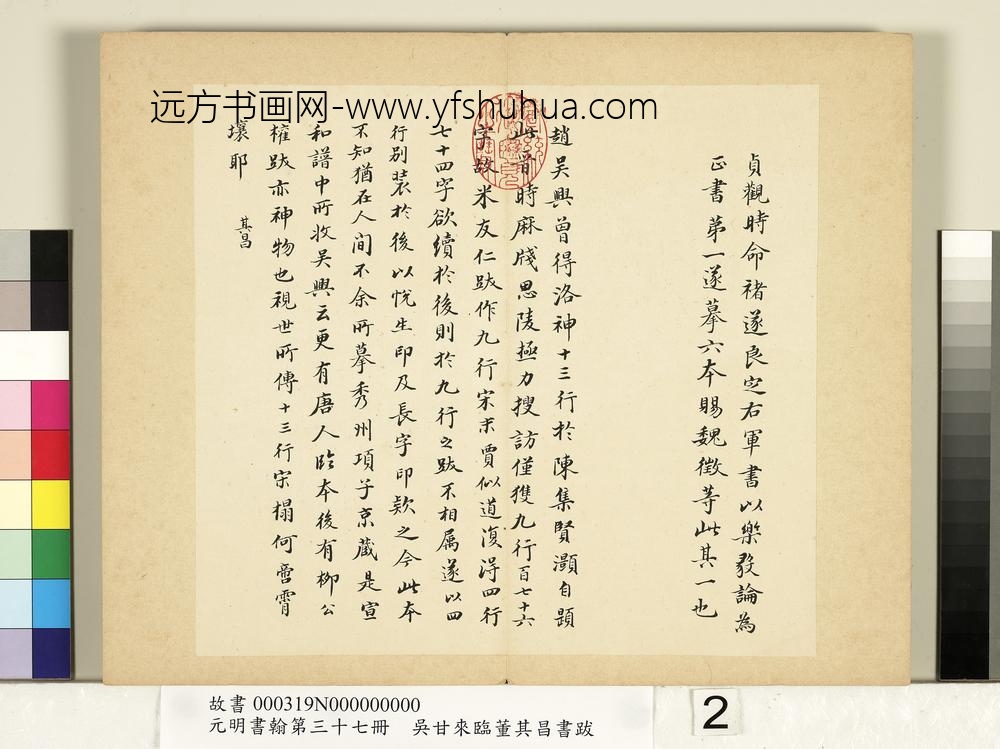 远方书画网-www.yfshuhua.com
貞觀時命褚遂良定右軍書以樂毅論為
正書第一遂摹六本賜魏徵等此其一也
趙吳興曾得洛神十三行於陳集賢灝自題
此晉時麻牋思陵極力搜訪僅獲九行百七十六
字故米友仁跋作九行宋末賈似道復得四行
七十四字欲續於後則於九行之跋不相属遂以四
行別装於後以悅生印及長字印款之今此本
不知猶在人间不余所摹秀州項子京蔵是宣
和譜中所收吳興云更有唐人臨本後有柳公
權跋亦神物也視世所傳十三行宋搨何啻霄
壤耶
其昌
故書 000319N000000000
元明書翰第三十七冊 吳甘來臨董其昌書跋
2